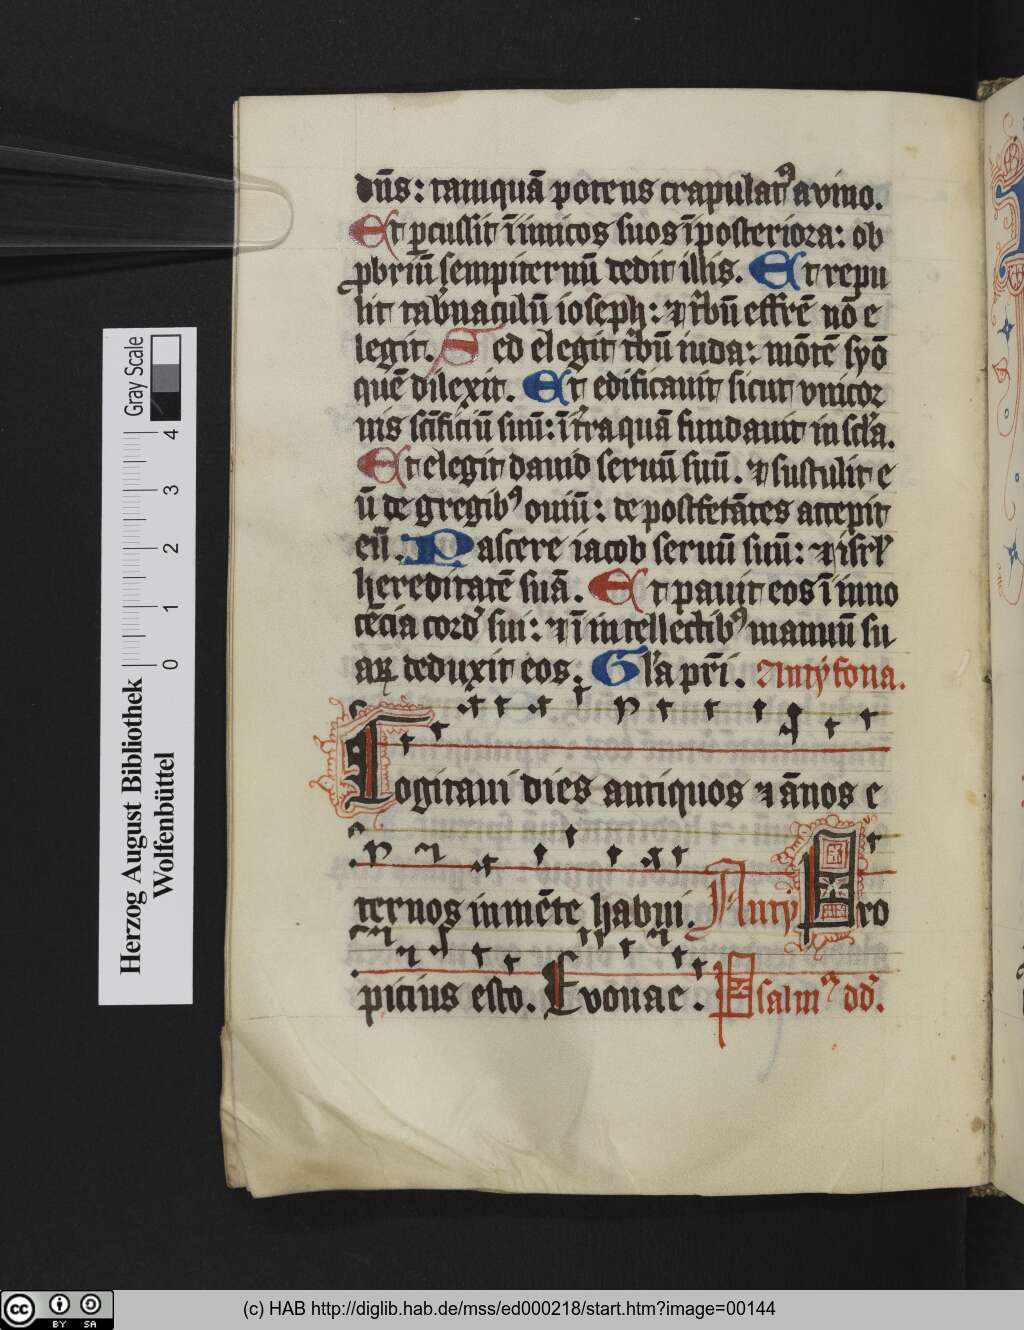 dn̄s: tamquā potens crapulatꝰ a vino.
Et ꝑcussit īimicos suos ī posteriora: ob
ꝓbriū sempiternū dedit illis. Et repu
lit tab̓naculū ioseph: ⁊ tͥbū effrē nō e
legit. Sed elegit tͥbū iuda: mōtē syō
quē dilexit. Et edificauit sicut vnicor
nis sc̄ificiū suū: ī t̓ra quā fundauit in scl̓a.
Et elegit dauid seruū suū. ⁊ sustulit e
ū de gregibꝰ ouiū: de postfetātes accepit
eū. Pascere iacob seruū suū: ⁊ isrl̓
hereditatē suā. Et pauit eos ī inno
cēcia cord̓ sui: ⁊ ī intellectibꝰ manuū su
aꝝ deduxit eos. Gl̓a pr̄i. Antyfona.
Cogitaui dies antiquos ⁊ ānos e
ternos in mēte habui. Anty Pro
picius esto. Evovae. Psalmꝰ dd̓.
Herzog August Bibliothek
Wolfenbüttel
Gray Scale
0 1 2 3 4
(c) HAB http://diglib.hab.de/mss/ed000218/start.htm?image=00144
cc BY SA